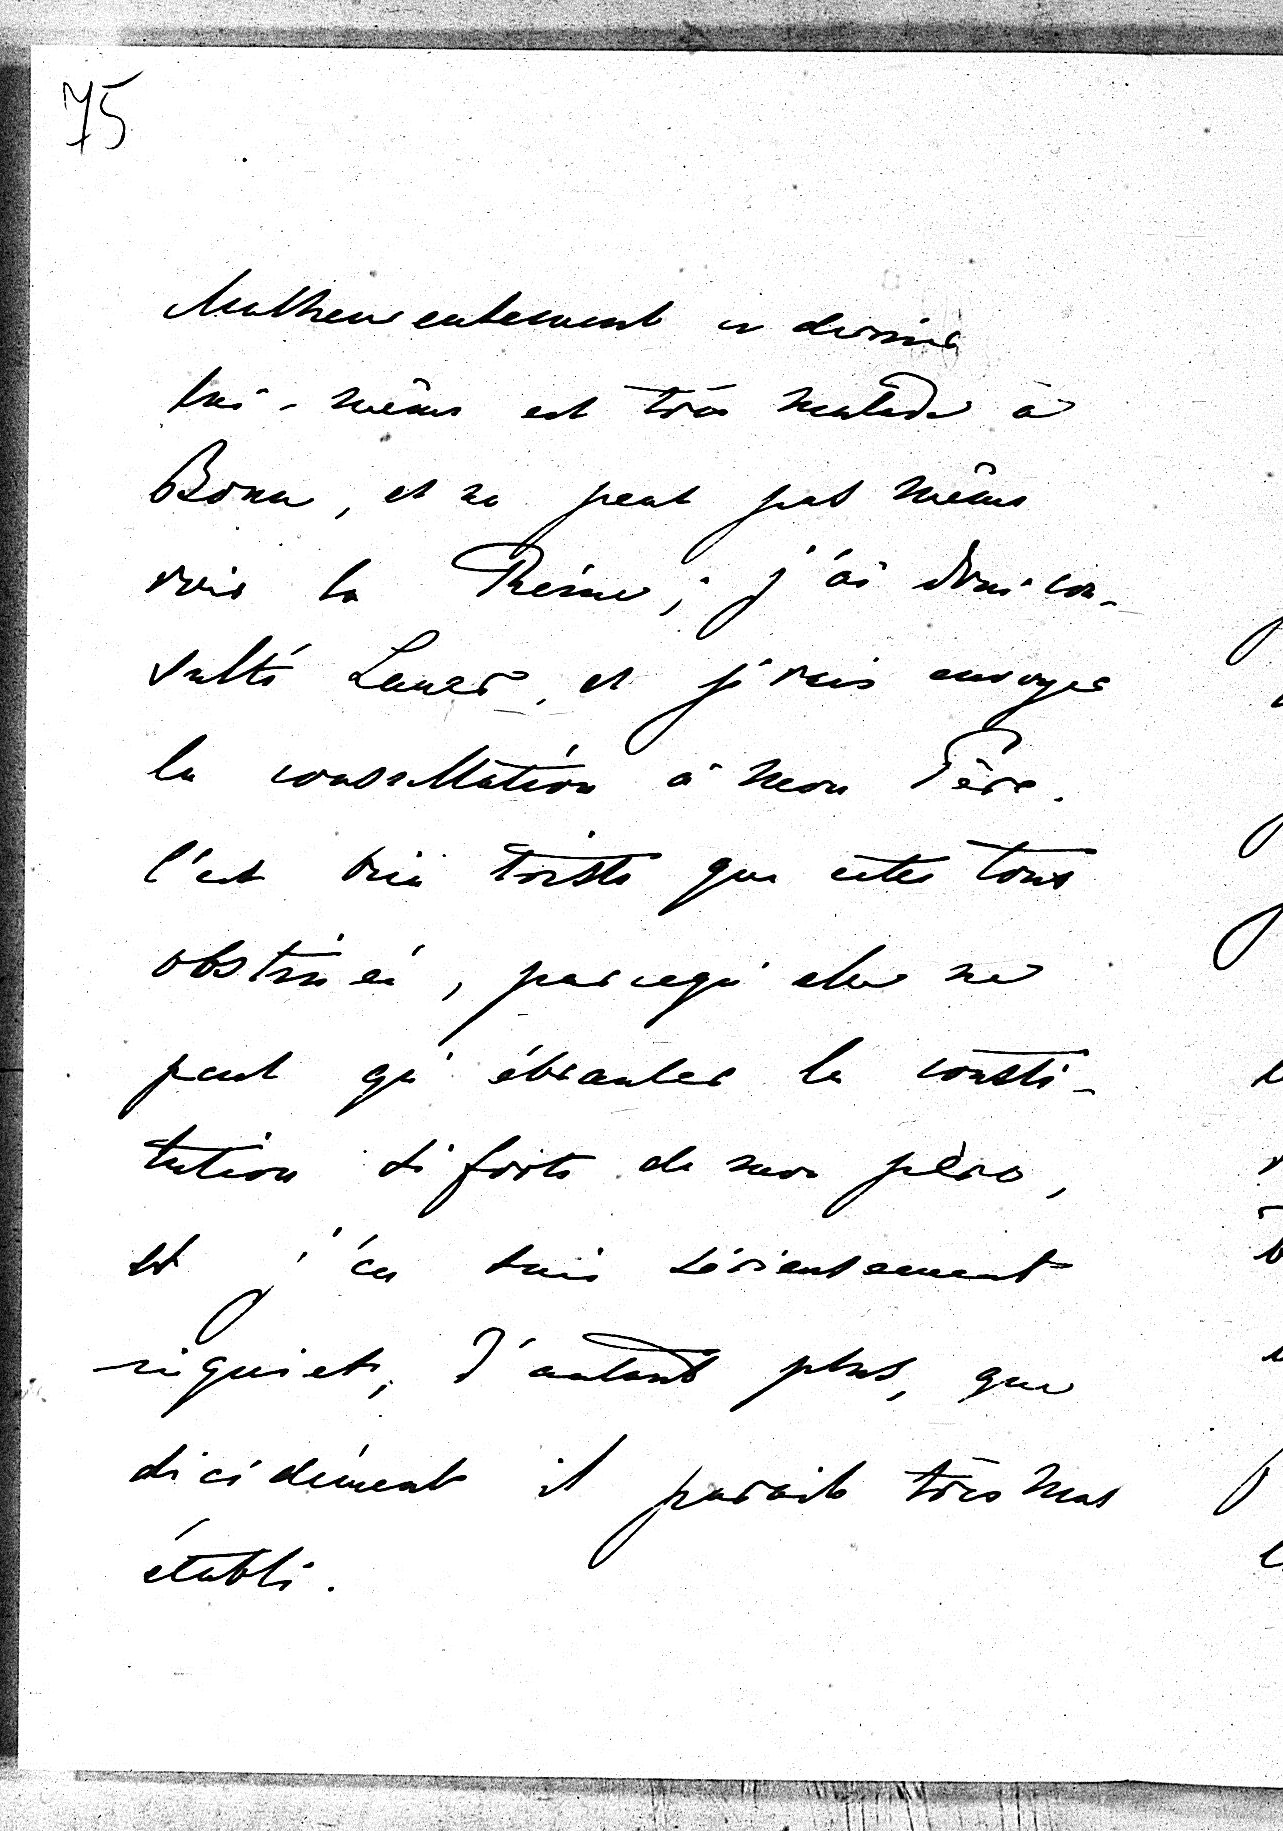 75
Malheureusement ce dernier
lui-même est très malade à
Bonn, et ne peut pas même
voir la Reine; j'ai donc con-
sulté Lauer, et je vais envoyer
la consultation à mon Père.
C'est bien triste que cette toux
obstinée, parcequ'elle ne
peut qu'ébranler la consti-
tution si forte de mon père,
et j'en suis sérieusement
inquiet, d'autant plus, que
décidément il paraît très mal
établi.